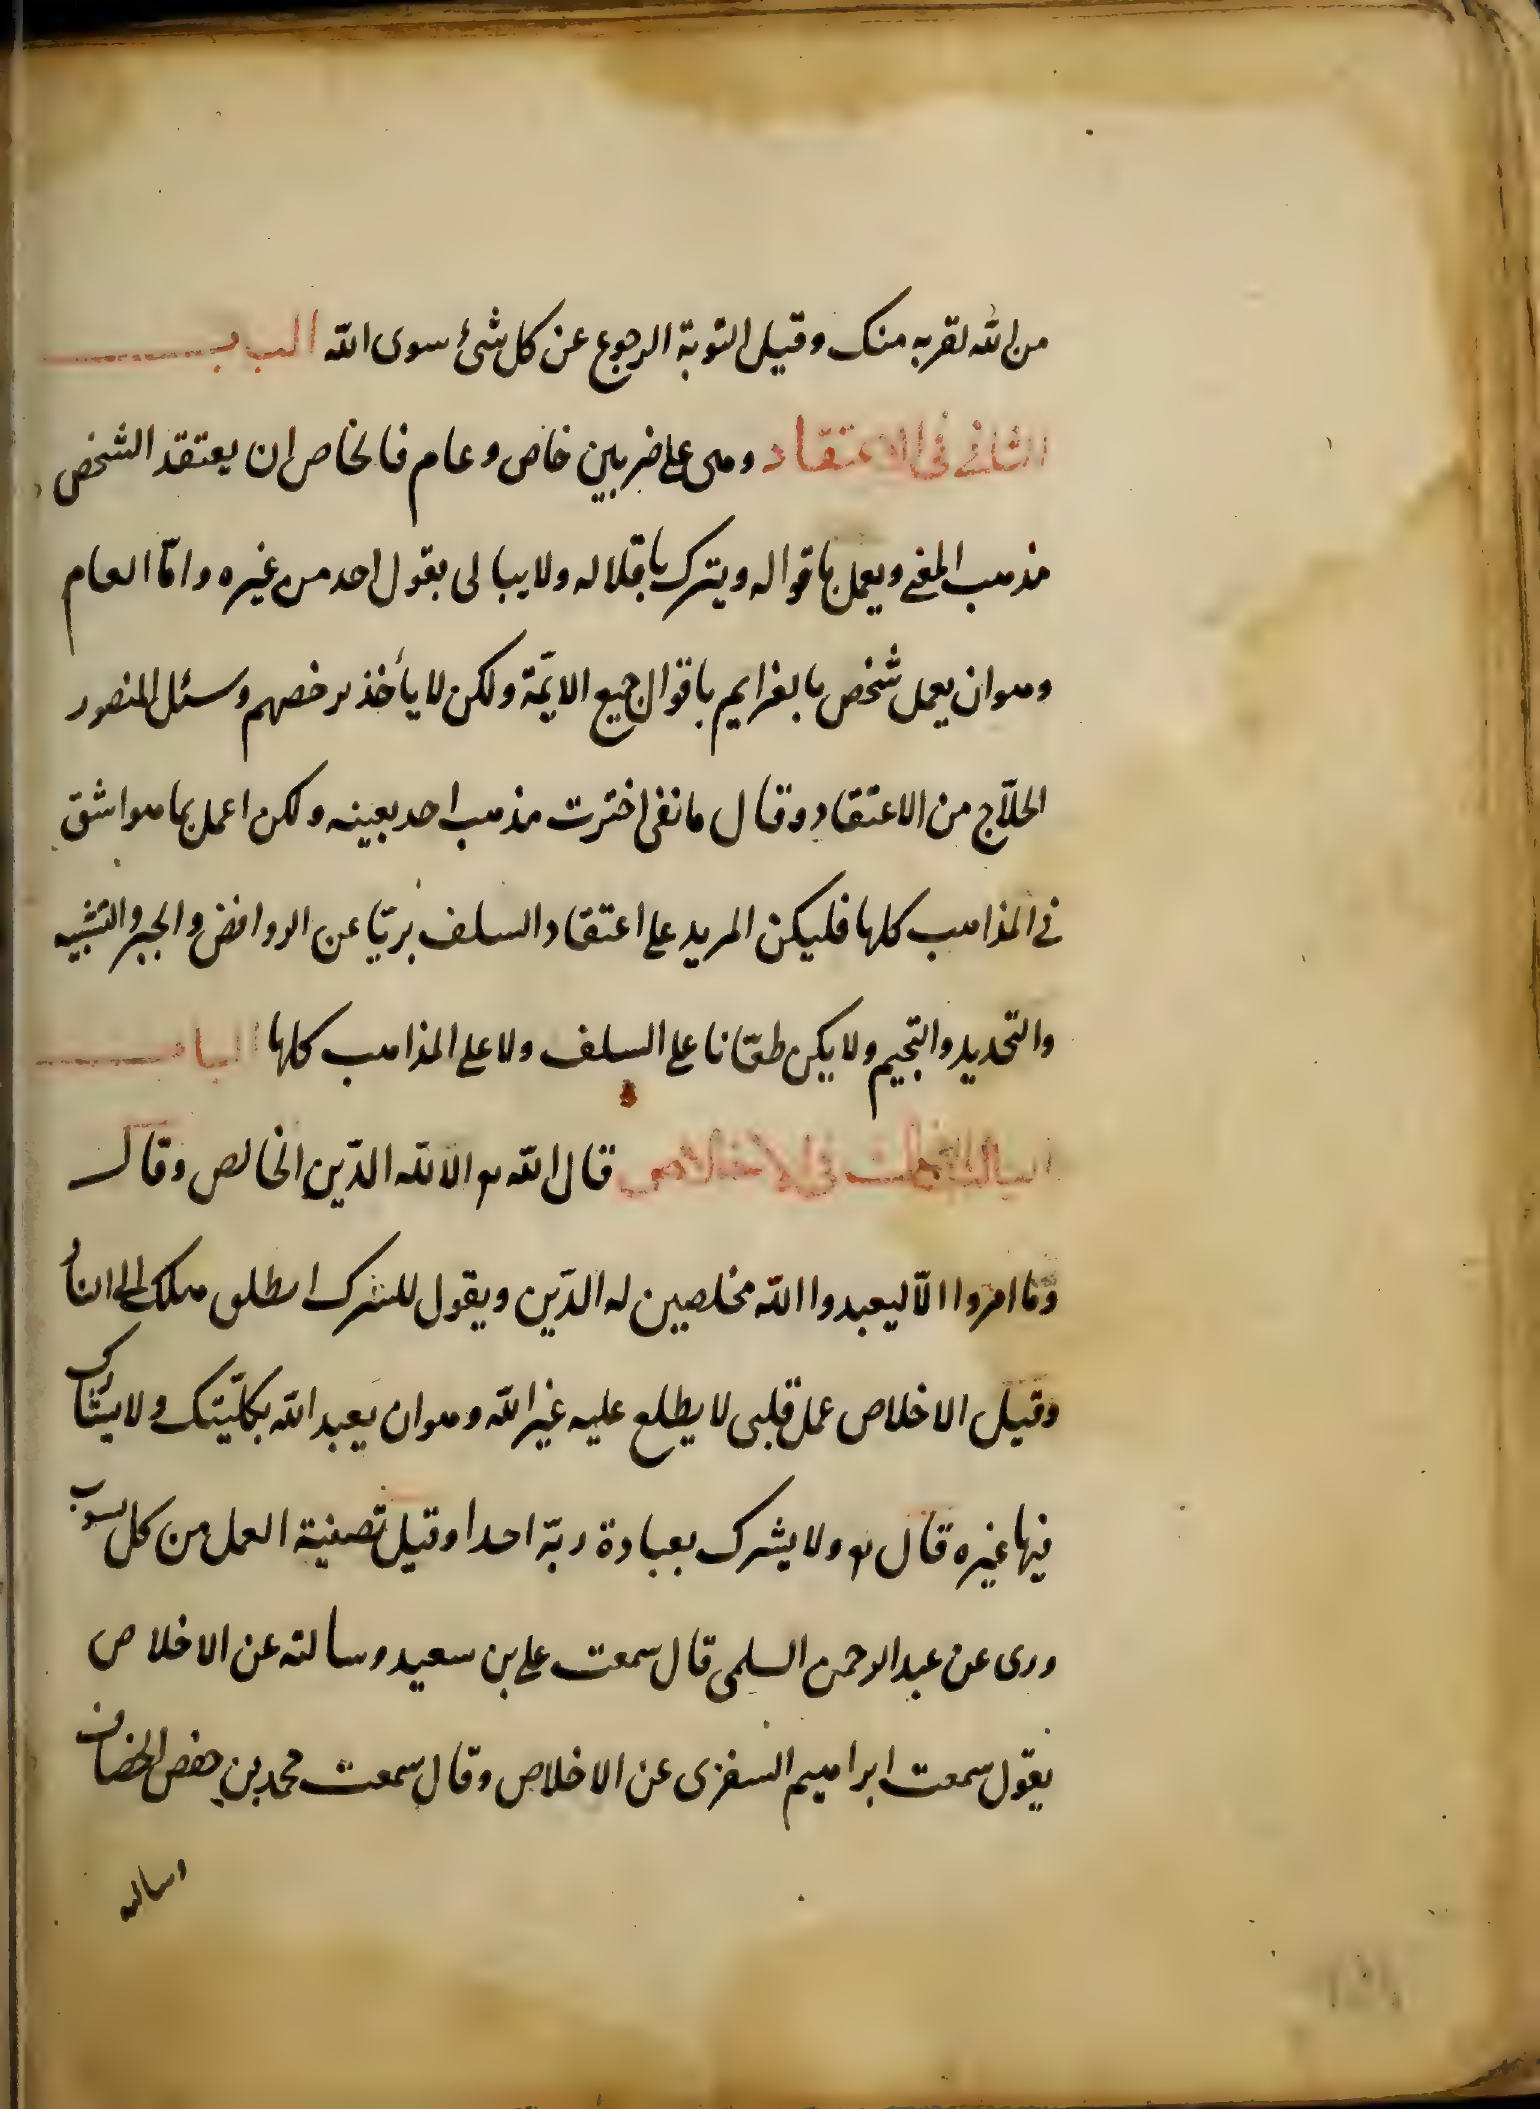 من الله لقربه منك وقيل التوبة الرجوع عن كل شئ سوى الله الباب
الثانى فى الاعتقاد وهى على ضربين خاص وعام فالخاص ان يعتقد الشخص
مذهب ويعمل باقواله ويترك باقلاله ولا يبالى بقول احد من غيره وامّا العام
وهو ان يعمل شخص بالعزايم باقوال جميع الايمّة ولكن لا يأخذ برخصهم وسئل المنصور
الحلّاج من الاعتقاد وقال ما اخترت مذهب احد بعينه ولكن اعمل بما هو اشق
فى المذاهب كلها فليكن المريد على اعتقاد السلف بريّا عن الروافض والجبر والتشبيه
والتحديد والتجسيم ولا يكن طعّانا على السلف ولا على المذاهب كلها الباب
الثالث فى الاخلاص قال الله تع الا لله الدّين الخالص وقال
وما امروا الّا ليعبدوا الله مخلصين له الدّين ويقول للشرك
وقيل الاخلاص عمل قلبى لا يطلع عليه غير الله وهو ان يعبد الله بكلّيتك ولا
فيها غيره قال تع ولا يشرك بعبادة ربّه احدا وقيل تصفية العمل من كل شوب
وروى عن عبد الرحمن السلمى قال سمعت على بن سعيد وسالته عن الاخلاص
يقول سمعت ابراهيم عن الاخلاص وقال سمعت محمد بن حفص
وسالته